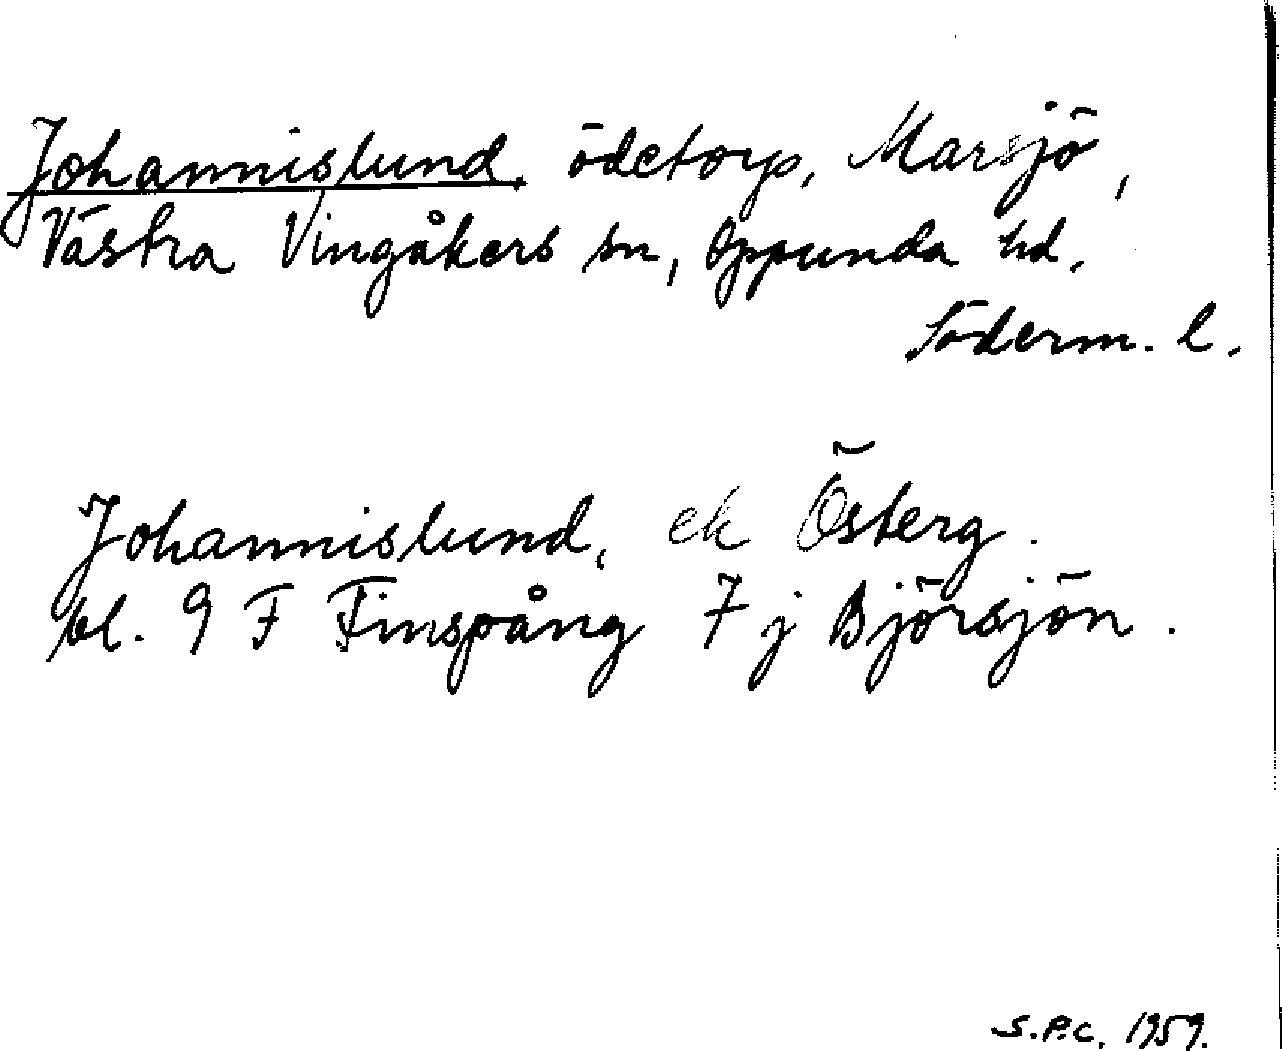 Johannislund, ödetorp, Marsjö,
Västra Vingåkers sn, Oppunda hd.
Söderm. l.
Johannislund, ek Österg.
bl. 9 F Finspång 7 j Björsjön.
S.P.C. 1959.